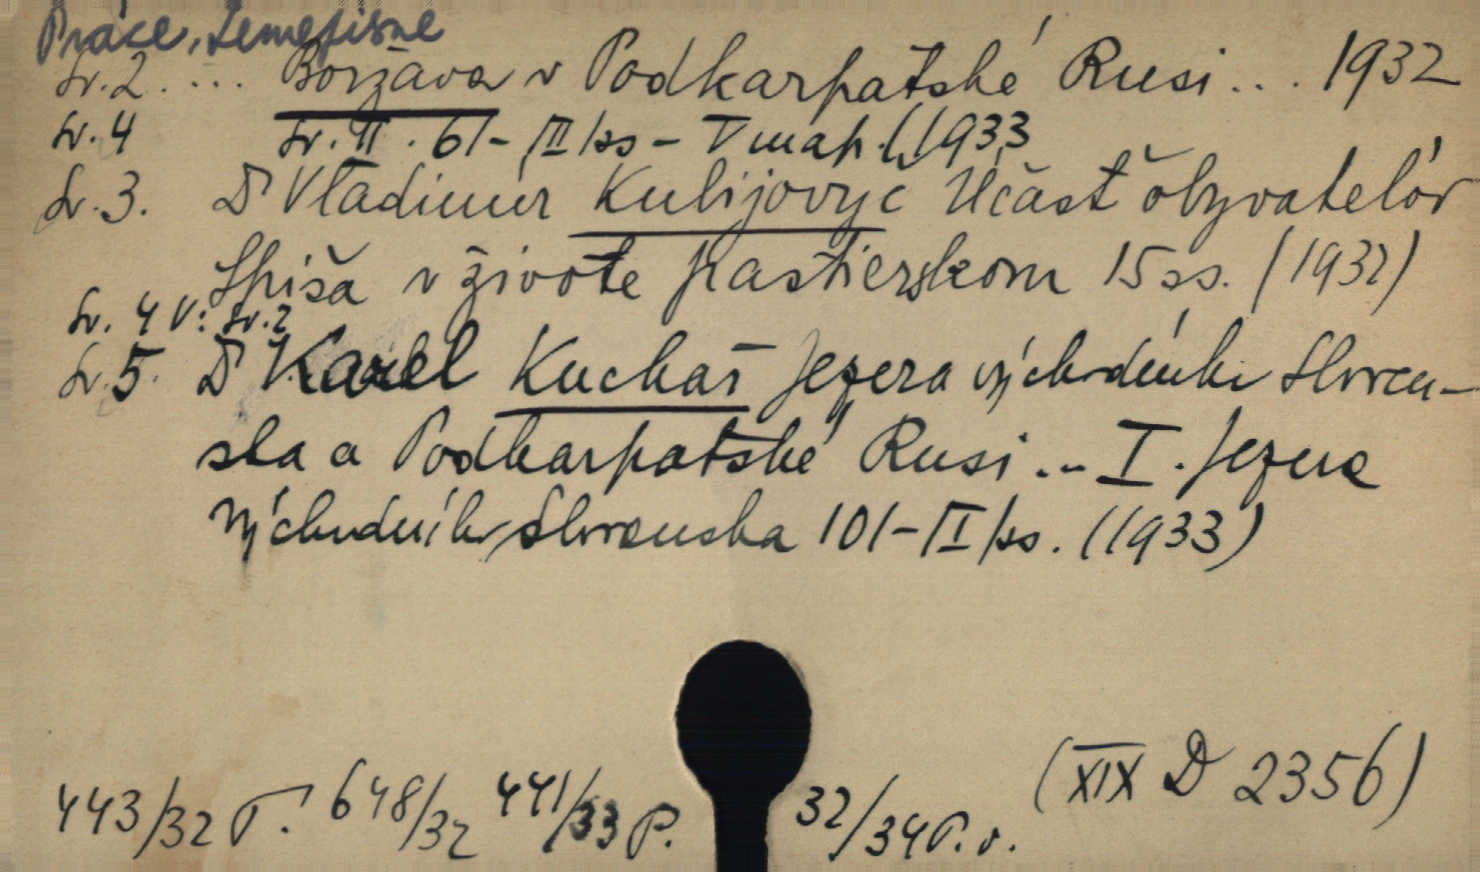 Práce, Zeměpisné
Sv. 2. ... Boržava v Podkarpatské Rusi ... 1932
Sv. 4 Sv. II. 61-/III/ss - V map. (1933
Sv. 3. Dr Vladimír Kubijovyč Účast obyvatelóv
Spiša v živote pastierskom 15 ss. (1932)
Sv. 4 v: sv. 2
Sv. 5. Dr Karel Kuchař Jezera východního Sloven-
ska a Podkarpatské Rusi ... I. Jezera
východního Slovenska 101-/II/ss. (1933)
443/32 P. 648/32 441/33 P. 32/34 P. v. (XIX D 2356)